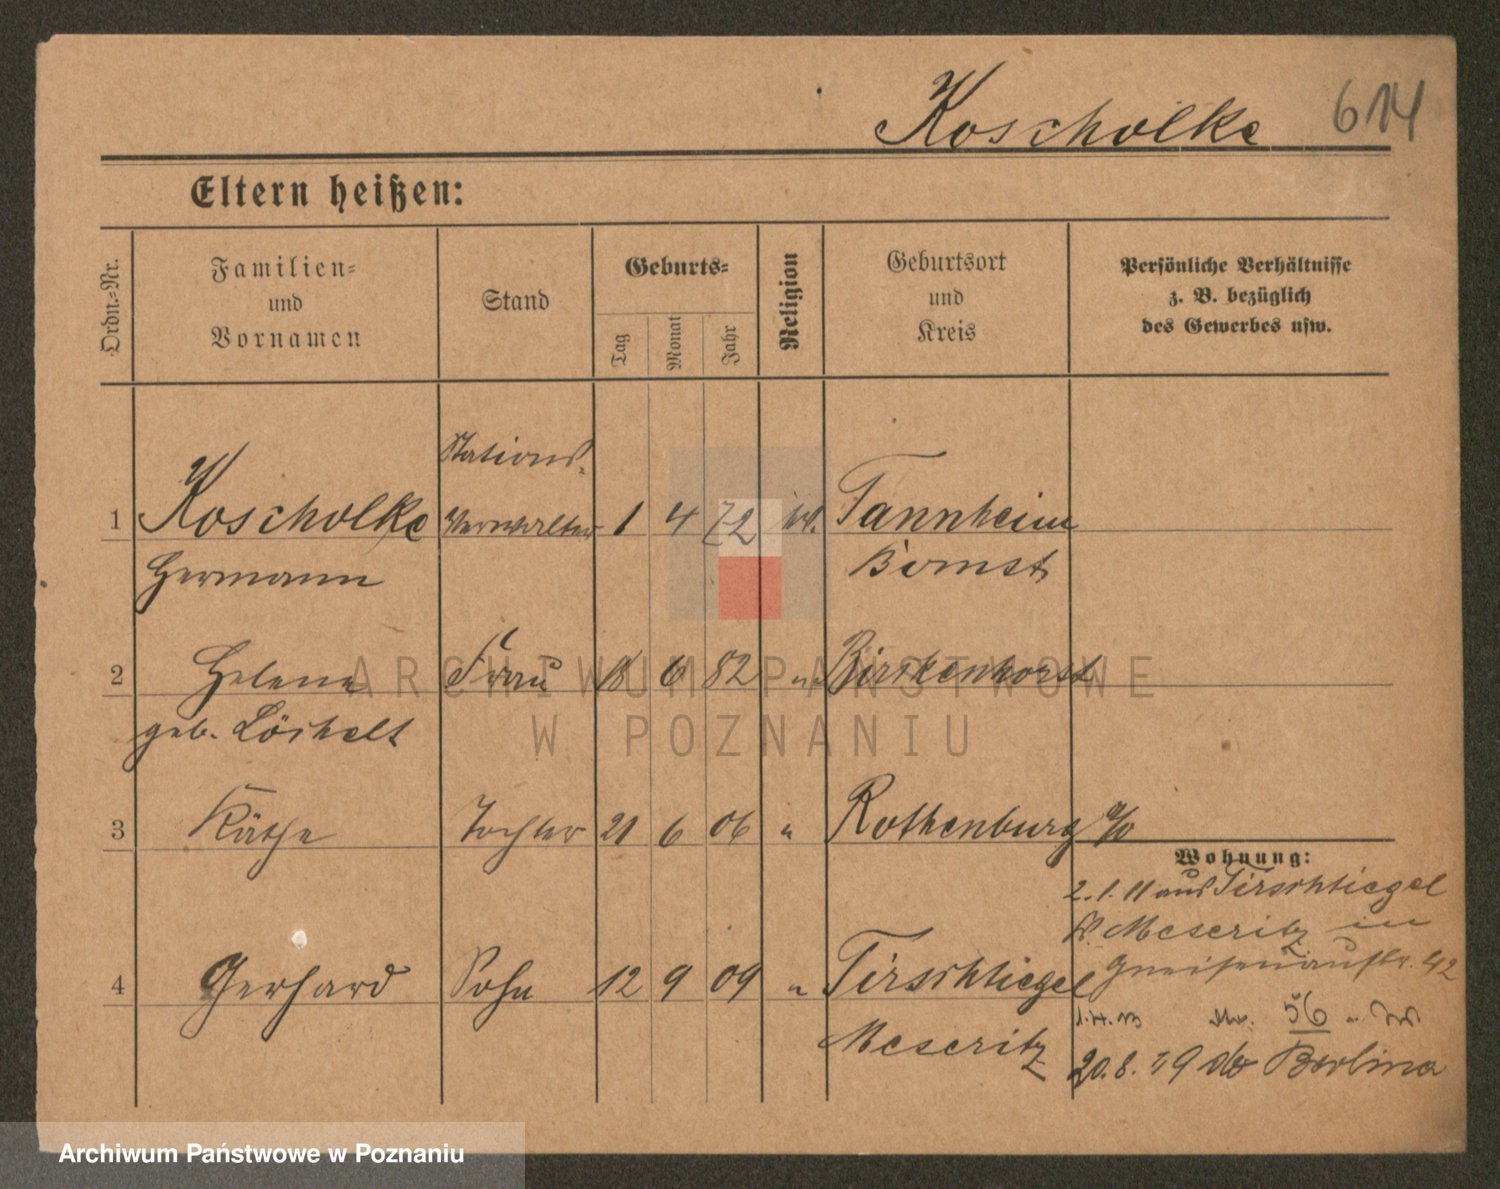 Koscholke 614
Eltern heißen:
Ordn.-Nr.
Familien-
und
Vornamen
Stand
Geburts-
Tag
Monat
Jahr
Religion
Geburtsort
und
Kreis
Persönliche Verhältnisse
z. B. bezüglich
des Gewerbes usw.
Stations-
1 Koscholke Verwalter 1 4 72 Tannheim
Hermann Bomst
2 Helene Frau 18 6 82 " Birkenhorst
geb. Löchelt
3 Käthe Tochter 21 6 06 " Rothenburg a/O
Wohnung:
2.1.11 aus Tirschtiegel
K. Meseritz in
Gneisenaustr. 42
4 Gerhard Sohn 12 9 09 " Tirschtiegel
Meseritz
56
20.8.19 do Berlina
ARCHIWUM PAŃSTWOWE
W POZNANIU
Archiwum Państwowe w Poznaniu